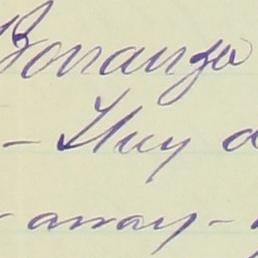 Bonanza
- They a
- away -